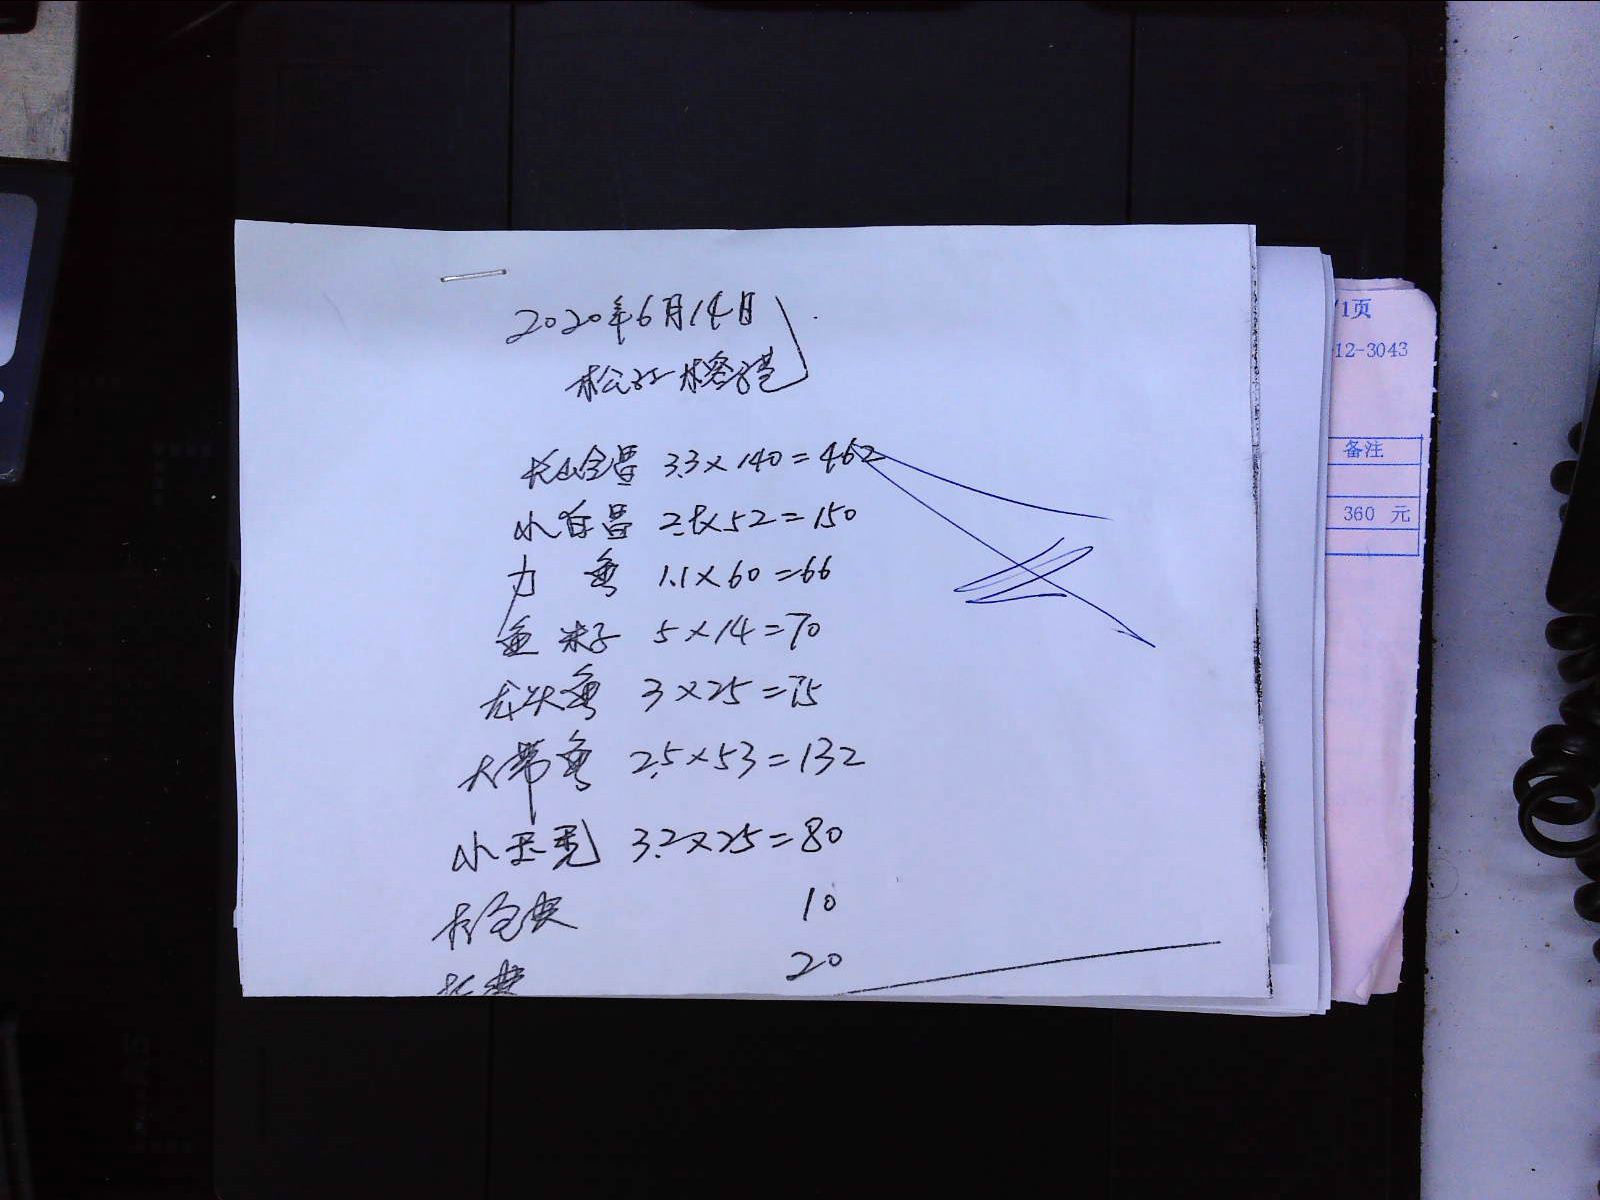 2020年6月14日
松江榕港
3.3×140=462
小白昌 2.×52=150
力鱼 1.1×60=66
鱼米子 5×14=70
龙头鱼 3×25=75
大带鱼 2.5×53=132
小玉秃 3.2×25=80
10
费 20
/1页
12-3043
备注
360 元